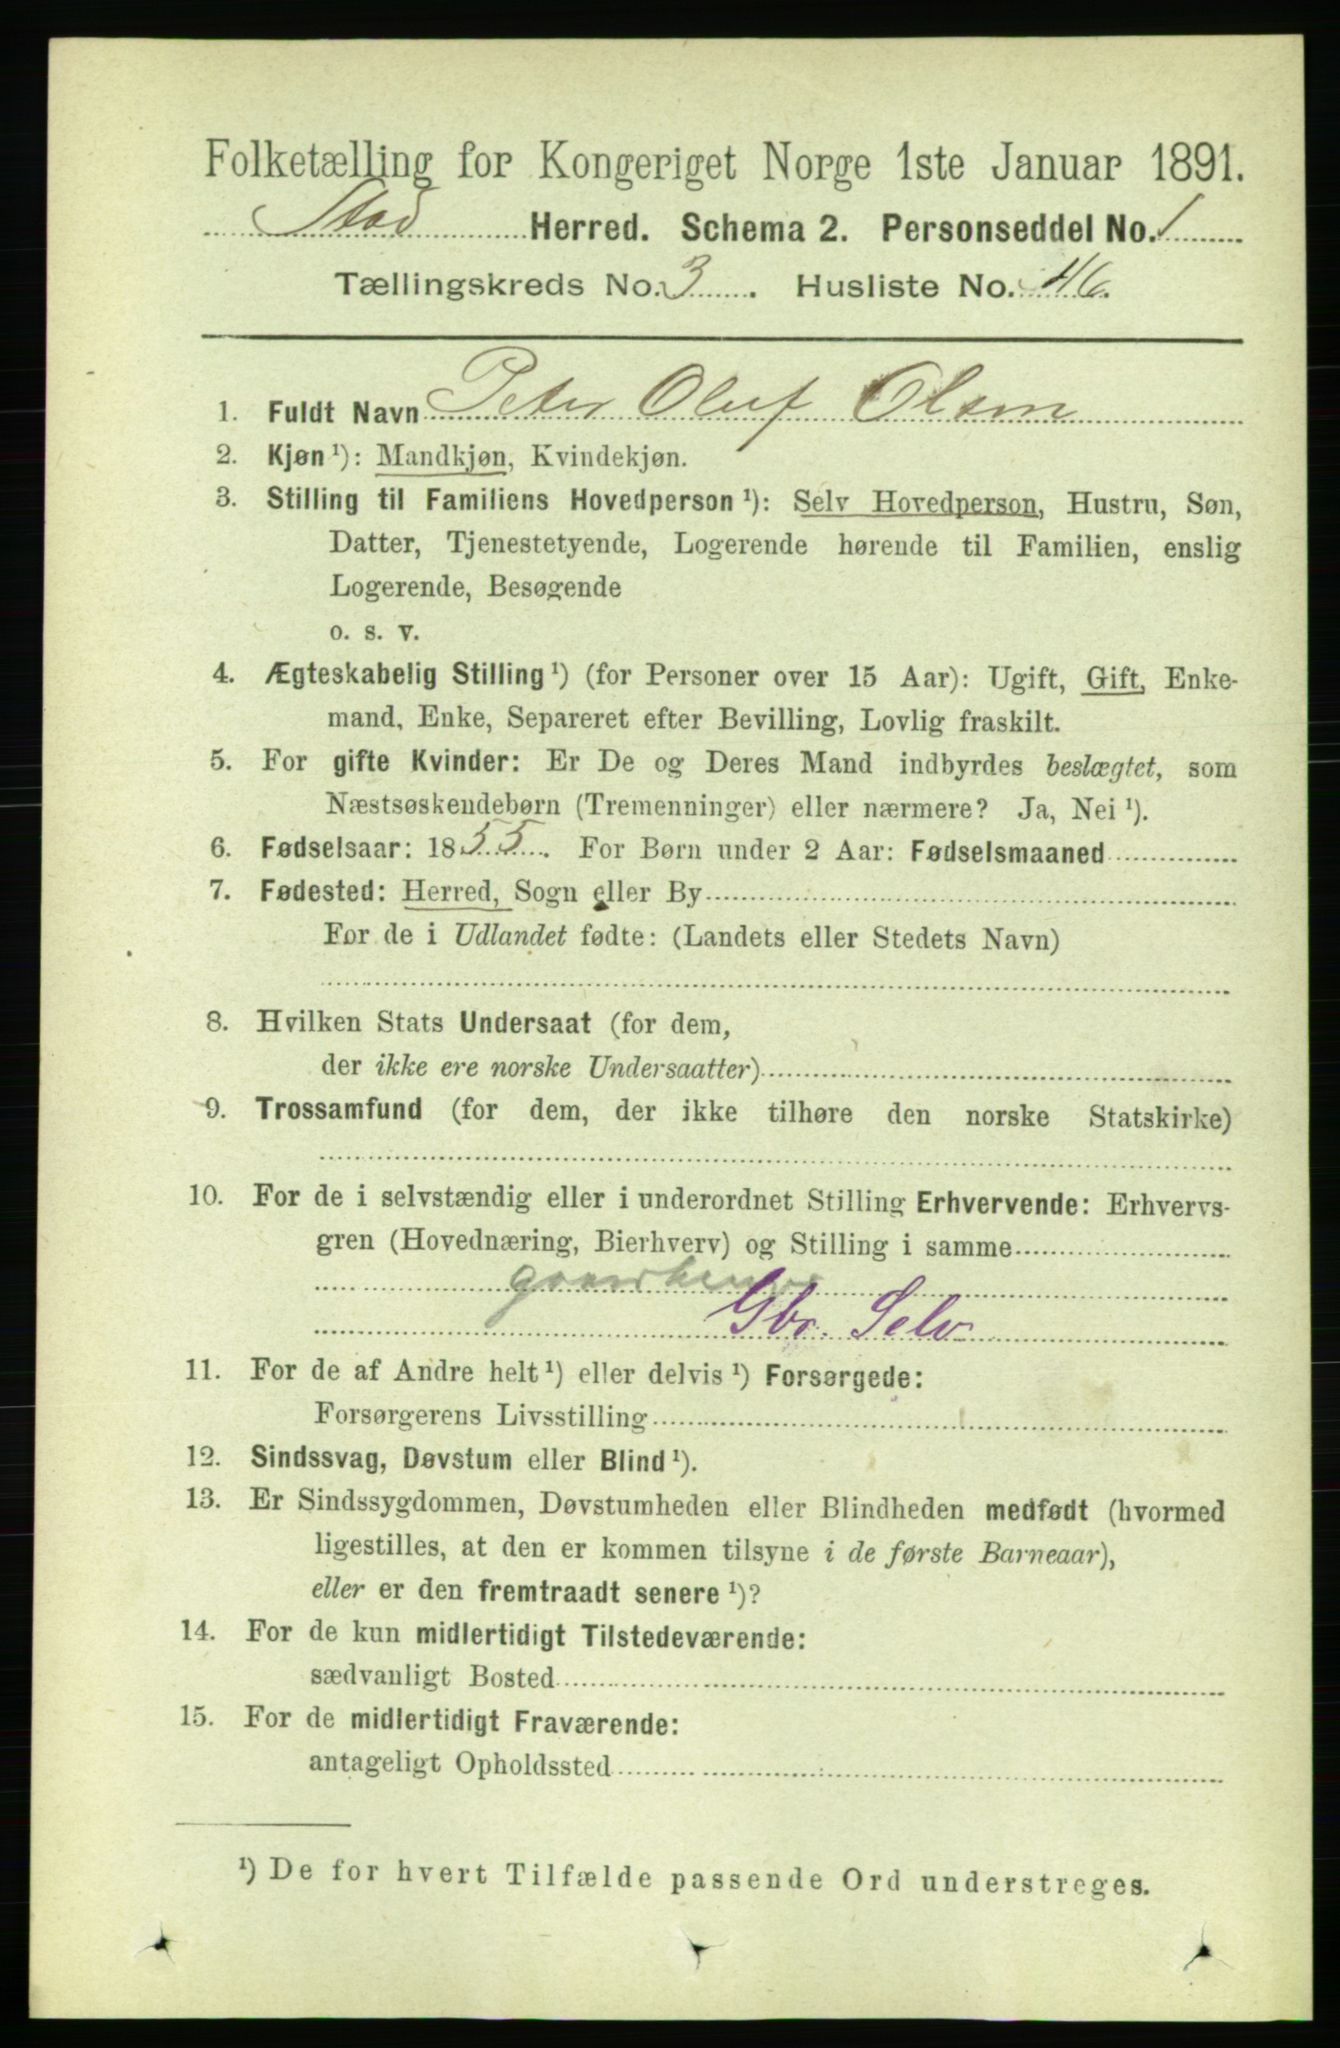 Folketælling for Kongeriget Norge 1ste Januar 1891.
Stod Herred. Schema 2. Personseddel No. 1
Tællingskreds No. 3. Husliste No. 46.
1. Fuldt Navn Peter Oluf Olsen
2. Kjøn ¹): Mandkjøn, Kvindekjøn.
3. Stilling til Familiens Hovedperson ¹): Selv Hovedperson, Hustru, Søn,
Datter, Tjenestetyende, Logerende hørende til Familien, enslig
Logerende, Besøgende
o. s. v.
4. Ægteskabelig Stilling ¹) (for Personer over 15 Aar): Ugift, Gift, Enke-
mand, Enke, Separeret efter Bevilling, Lovlig fraskilt.
5. For gifte Kvinder: Er De og Deres Mand indbyrdes beslægtet, som
Næstsøskendebørn (Tremenninger) eller nærmere? Ja, Nei ¹).
6. Fødselsaar: 1855. For Børn under 2 Aar: Fødselsmaaned
7. Fødested: Herred, Sogn eller By
For de i Udlandet fødte: (Landets eller Stedets Navn)
8. Hvilken Stats Undersaat (for dem,
der ikke ere norske Undersaatter)
9. Trossamfund (for dem, der ikke tilhøre den norske Statskirke)
10. For de i selvstændig eller i underordnet Stilling Erhvervende: Erhvervs-
gren (Hovednæring, Bierhverv) og Stilling i samme
Gbr. Selv
11. For de af Andre helt ¹) eller delvis ¹) Forsørgede:
Forsørgerens Livsstilling
12. Sindssvag, Døvstum eller Blind ¹).
13. Er Sindssygdommen, Døvstumheden eller Blindheden medfødt (hvormed
ligestilles, at den er kommen tilsyne i de første Barneaar),
eller er den fremtraadt senere ¹)?
14. For de kun midlertidigt Tilstedeværende:
sædvanligt Bosted
15. For de midlertidigt Fraværende:
antageligt Opholdssted
¹) De for hvert Tilfælde passende Ord understreges.